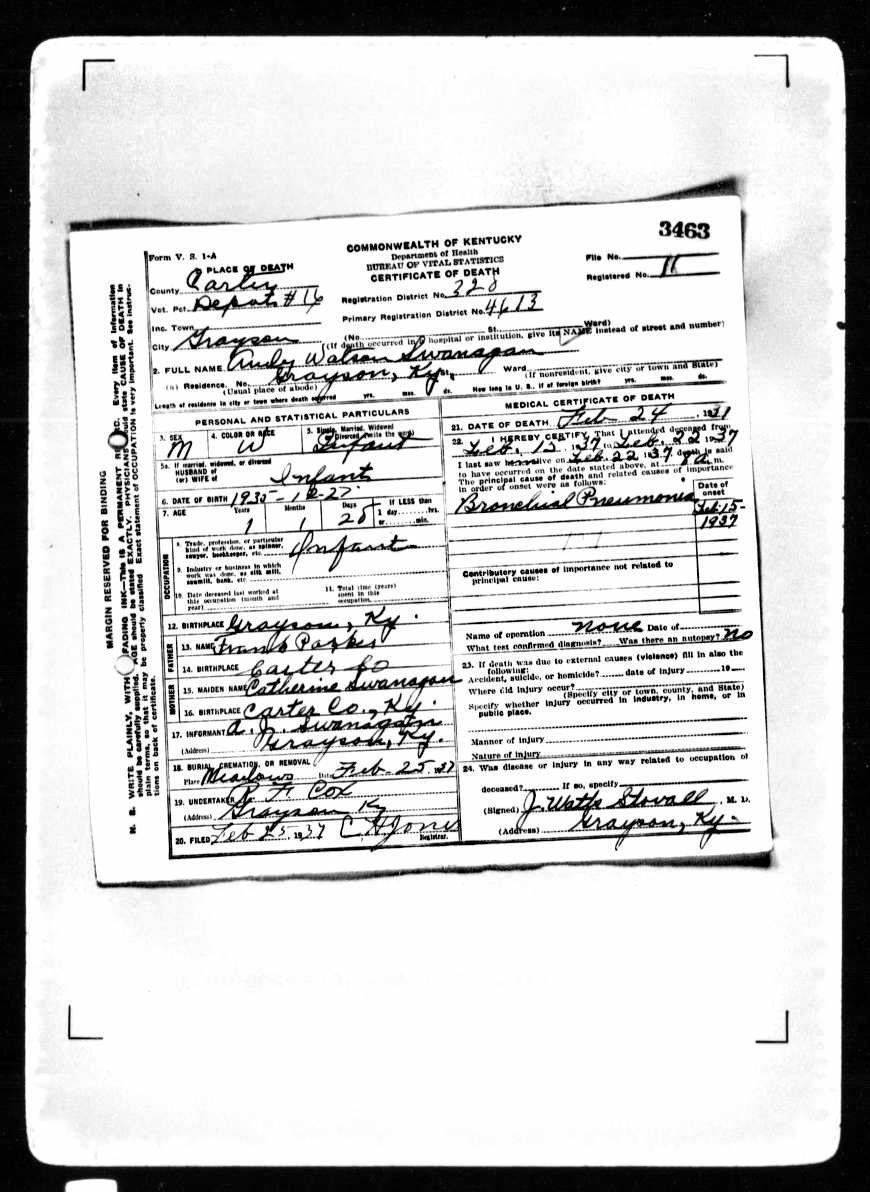 3463
Form V. S. 1-A
COMMONWEALTH OF KENTUCKY
Department of Health
BUREAU OF VITAL STATISTICS
CERTIFICATE OF DEATH
File No.
Registered No. 11
PLACE OF DEATH
County Carter
Vot. Pct. Depot #16
Inc. Town
City Grayson
Registration District No. 320
Primary Registration District No. 4613
(No. St. Ward)
(If death occurred in hospital or institution, give its NAME instead of street and number)
2. FULL NAME Andy Watson Swanagan
(a) Residence. No. Grayson, Ky. St., Ward
(Usual place of abode) (If nonresident, give city or town and State)
Length of residence in city or town where death occurred yrs. mos. ds. How long in U. S., if of foreign birth? yrs. mos. ds.
PERSONAL AND STATISTICAL PARTICULARS
3. SEX M
4. COLOR OR RACE W
5. Single, Married, Widowed
Divorced (write the word) Infant
5a. If married, widowed, or divorced
HUSBAND of
(or) WIFE of Infant
6. DATE OF BIRTH 1935-12-27
7. AGE Years 1 Months 1 Days 28 If LESS than
1 day hrs.
or min.
OCCUPATION
8. Trade, profession, or particular
kind of work done, as spinner,
sawyer, bookkeeper, etc. Infant
9. Industry or business in which
work was done, as silk mill,
sawmill, bank, etc.
10. Date deceased last worked at
this occupation (month and
year)
11. Total time (years)
spent in this
occupation
12. BIRTHPLACE Grayson, Ky.
FATHER
13. NAME Frank Parker
14. BIRTHPLACE Carter Co
MOTHER
15. MAIDEN NAME Catherine Swanagan
16. BIRTHPLACE Carter Co., Ky.
17. INFORMANT A. J. Swanagan
(Address) Grayson, Ky.
18. BURIAL, CREMATION, OR REMOVAL
Place Meadows Date Feb-25 1937
19. UNDERTAKER R. F. Cox
(Address) Grayson Ky
20. FILED Feb 25, 1937 C H Jones
Registrar.
MEDICAL CERTIFICATE OF DEATH
21. DATE OF DEATH Feb 24, 1937
22. I HEREBY CERTIFY, That I attended deceased from
Feb. 15, 1937 to Feb. 22 1937
I last saw alive on Feb. 22 1937 death is said
to have occurred on the date stated above, at m.
The principal cause of death and related causes of importance
in order of onset were as follows:
Date of
onset
Bronchial Pneumonia Feb-15-
1937
Contributory causes of importance not related to
principal cause:
Name of operation none Date of
What test confirmed diagnosis? Was there an autopsy? No
23. If death was due to external causes (violence) fill in also the
following:
Accident, suicide, or homicide? date of injury 19
Where did injury occur?
(Specify city or town, county, and State)
Specify whether injury occurred in industry, in home, or in
public place.
Manner of injury
Nature of injury
24. Was disease or injury in any way related to occupation of
deceased? If so, specify
(Signed) J. Watts Stovall, M. D.
(Address) Grayson, Ky.
MARGIN RESERVED FOR BINDING
N. B. WRITE PLAINLY, WITH FADING INK—This IS A PERMANENT Every item of information
should be carefully supplied. AGE should be stated EXACTLY. PHYSICIANS should state CAUSE OF DEATH in
plain terms, so that it may be properly classified. Exact statement of OCCUPATION is very important. See instruc-
tions on back of certificate.